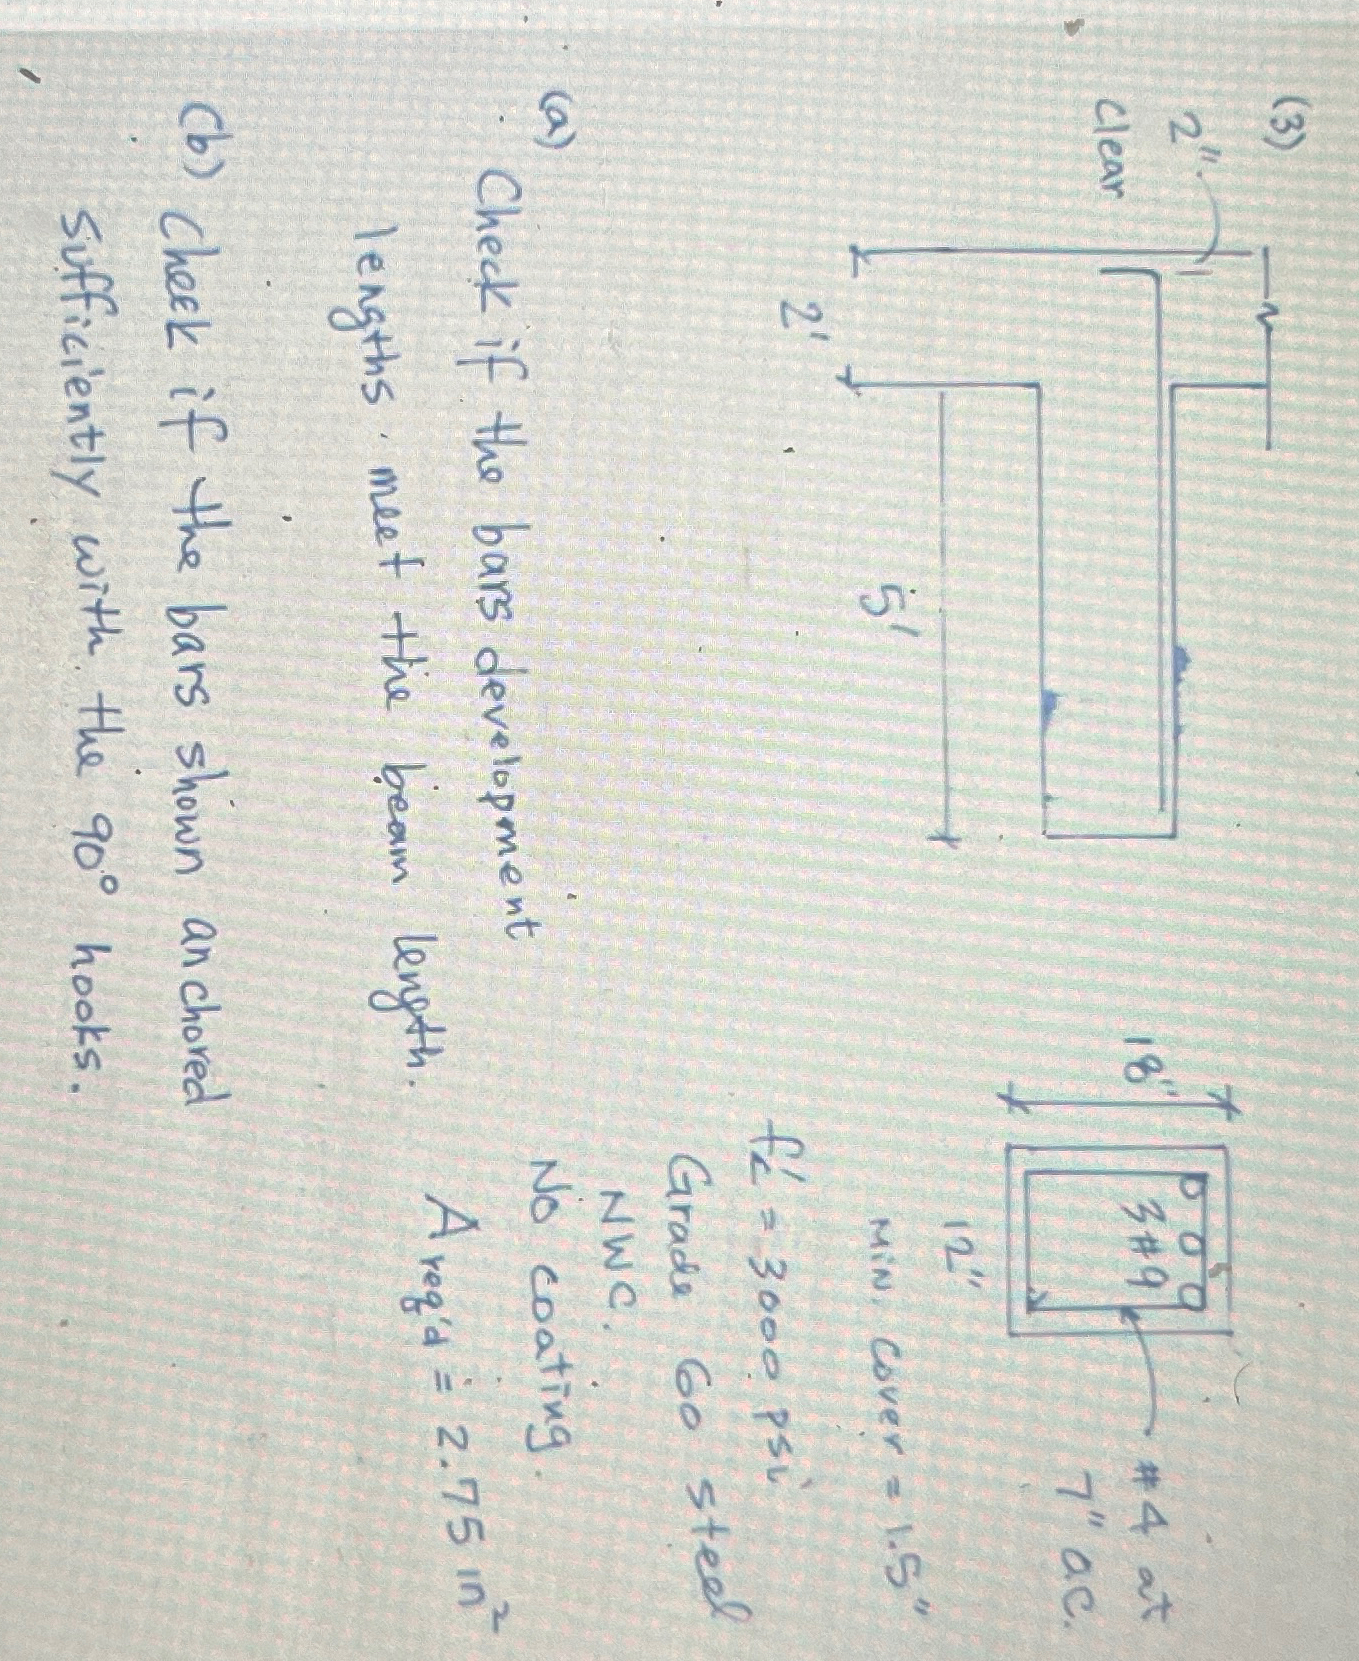 (3)
2"
clear
2'
5'
18"
3#9
#4 at
7" oc.
12"
Min. cover = 1.5"
fc' = 3000 psi
Grade 60 steel
NWC.
No coating
A req'd = 2.75 in²
(a) Check if the bars development
lengths meet the beam length.
(b) Check if the bars shown anchored
sufficiently with the 90° hooks.